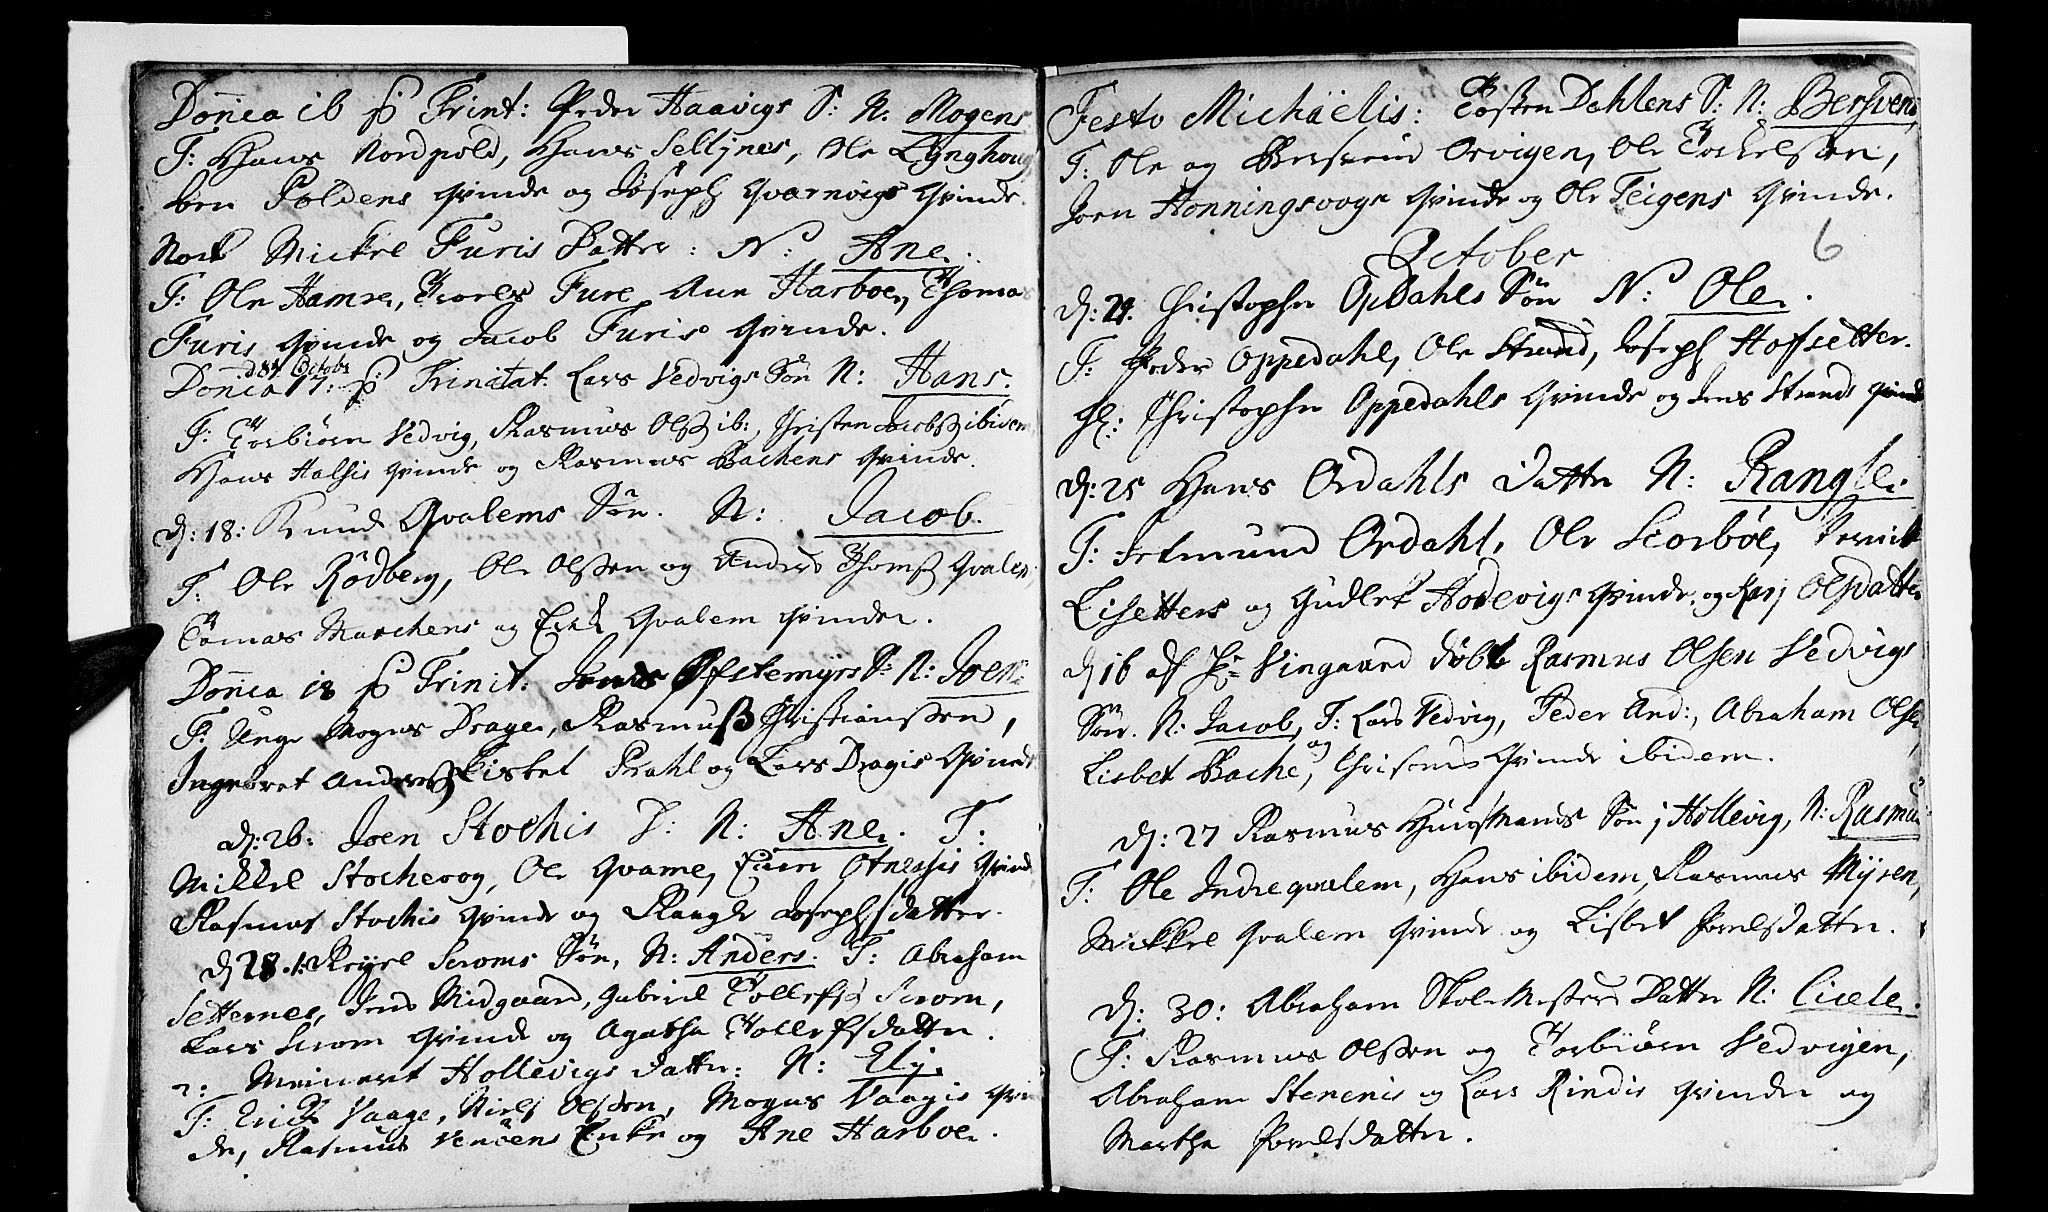 Dōnica 16 p Trinit: Peder Haavigs S: N. Mogens
F: Hans Nordpold, Hans Sellÿnes, Ole Lÿnghoug
ben Poldens qvinde og Joseph qvarnvigs qvinde.
Nock Mickel Furis Datter: N: Ane.
F: Ole Hamre, Troels Fure, Ane Harboe, Thomas
Furis qvinde og Jacob Furis qvinde.
Dōnica 17: p Trinitat: Lars Vedvigs Søn N: Hans.
F: Torbiørn Vedvig, Rasmus Olß ib:, Christen Jacobß ibidem
Hans Halsis qvinde og Rasmus Bachens qvinde.
d: 18: Knud Qvalems Søn. N: Jacob.
F: Ole Rødberg, Ole Olssen og Anders Thomß Qvalem
Tomas Maschens og Qvalem qvinder.
Dōnica 18 p Trinit: Øfstemÿrs S: N: Joen
F: Unge Mogns Drage, Rasmuß Christianssen,
Ingebret Andersß Kistel Prahl og Lars Dragis qvinde
d: 26: Joen Stochis D: N: Ane. F:
Mikkel Stochevog, Ole Qvame, Otnessis qvinde
Rasmus Stochis qvinde og Rangle Josephsdatter.
d 28. Scroms Søn, N: Anders. F: Abraham
Setternes, Jens Midgaard, Gabriel Tollefß Scrom,
Lars Scrom qvinde og Agatha Tollefsdatter.
2: Meinert Hollevigs datter: N: Elÿ.
F: Erick Vaage, Niels Olssen, Mogns Vaagis qvin
de, Rasmus Venøens Enke og Ane Harboe.
Festo Michäelis: Tosten Dahlens S: N: Bersvend
F: Ole og Bersvend Orvigen, Ole Torkelssen,
Joen Honningsvogs qvinde og Ole Teigens qvinde.
6
October
d: 24. Christopher Opdahls Søn N: Ole.
F: Peder Oppedahl, Ole Strand, Joseph Hoffsetter.
Gl: Christopher Oppedahls qvinde og Jens Strands qvinde
d: 25 Hans Ordahls datter N: Rangle.
F: Jetmund Ordahl, Ole Scorbøe,
Lisetters og Gudlef Hodevigs qvinde, og Kari Olsdatter
d 16 af Hr Vingaard døbt Rasmus Olsen Vedvigs
Søn. N: Jacob, F: Lars Vedvig, Peder And:, Abraham Olsen,
Lisbet Bache, og Chrisens qvinde ibidem.
d: 27 Rasmus Huusmands Søn i Hollevig, N: Rasmus
F: Ole Indreqvalem, Hans ibidem, Rasmus Mÿren,
Mikkel Qvalem qvinde og Lisbet Povelsdatter.
d: 30: Abraham Skole Mesters Datter N: Cicele.
F: Rasmus Olssen og Torbiørn Vedvigen,
Abraham Stenenis og Lars Rindis qvinder og
Martha Povelsdatter.